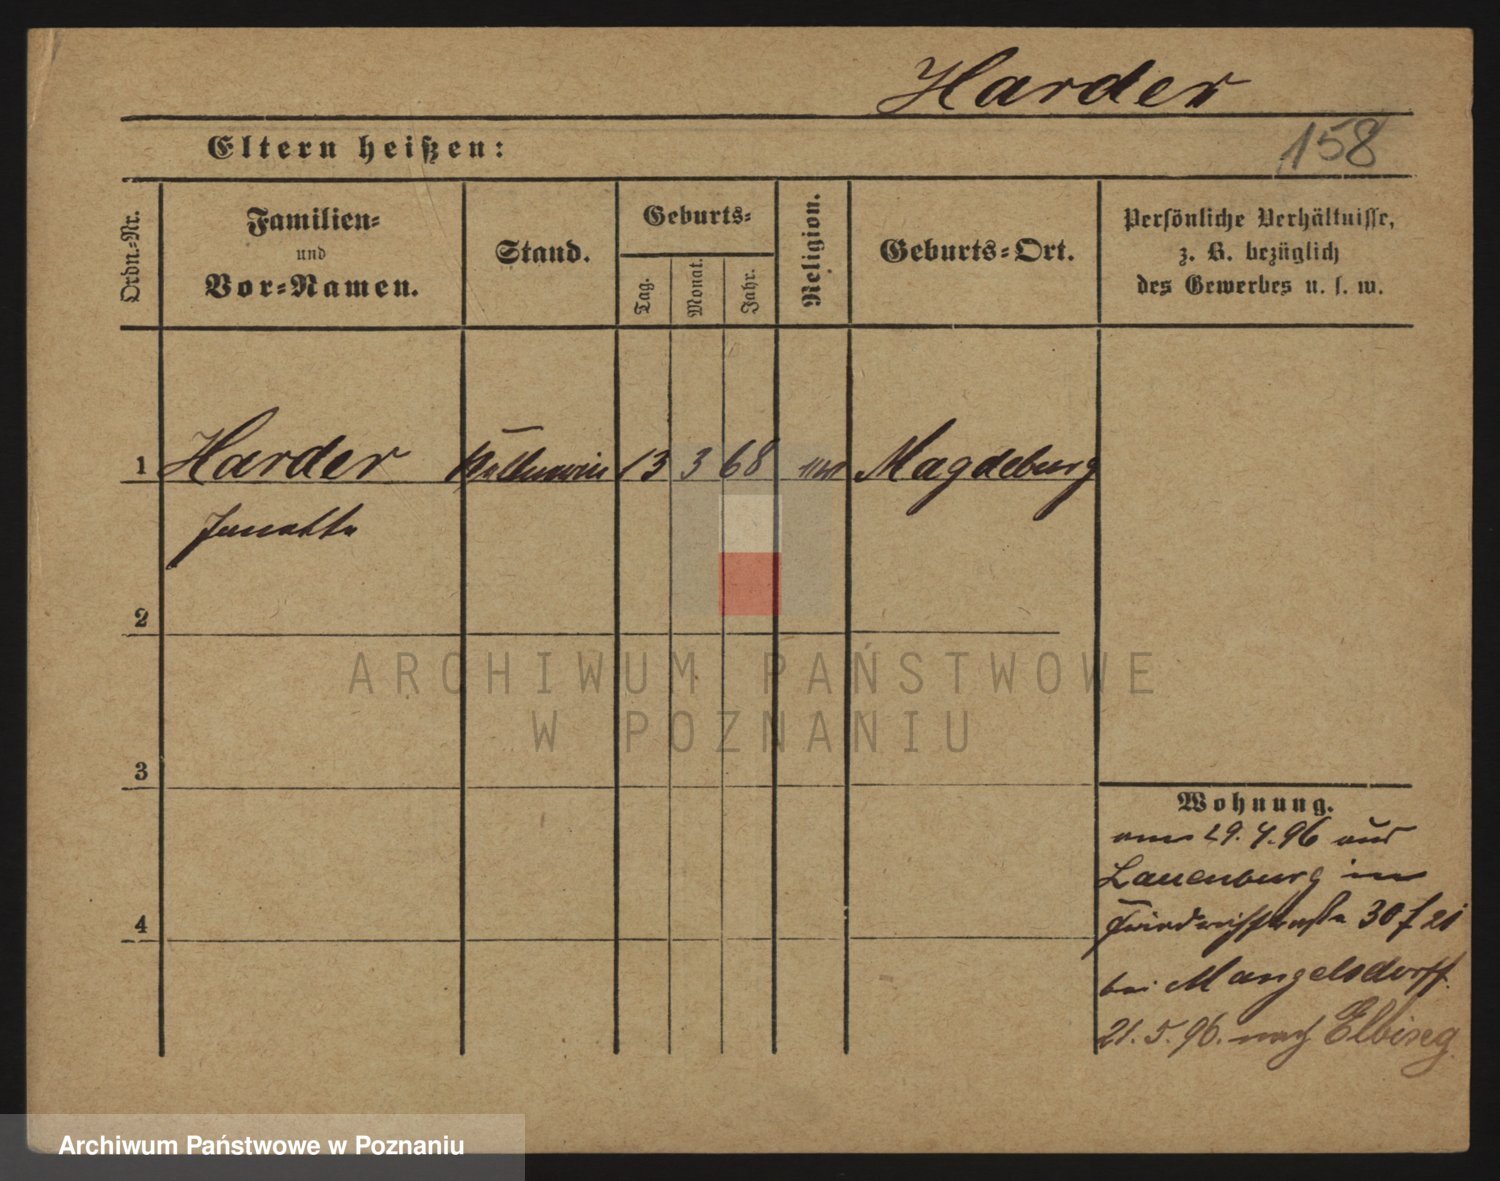 Harder
158
Eltern heißen:
Ordn.-Nr.
Familien-
und
Vor-Namen.
Stand.
Geburts-
Tag.
Monat.
Jahr.
Religion.
Geburts-Ort.
Persönliche Verhältnisse,
z. B. bezüglich
des Gewerbes u. s. w.
1 Harder Kellnerin 13 3 68 Magdeburg
2
3
4
Wohnung.
am 29. 4. 96 aus
Lauenburg in
Friedrichstraße 30
bei Mangelsdorff.
21. 5. 96. nach Elbing
ARCHIWUM PAŃSTWOWE
W POZNANIU
Archiwum Państwowe w Poznaniu